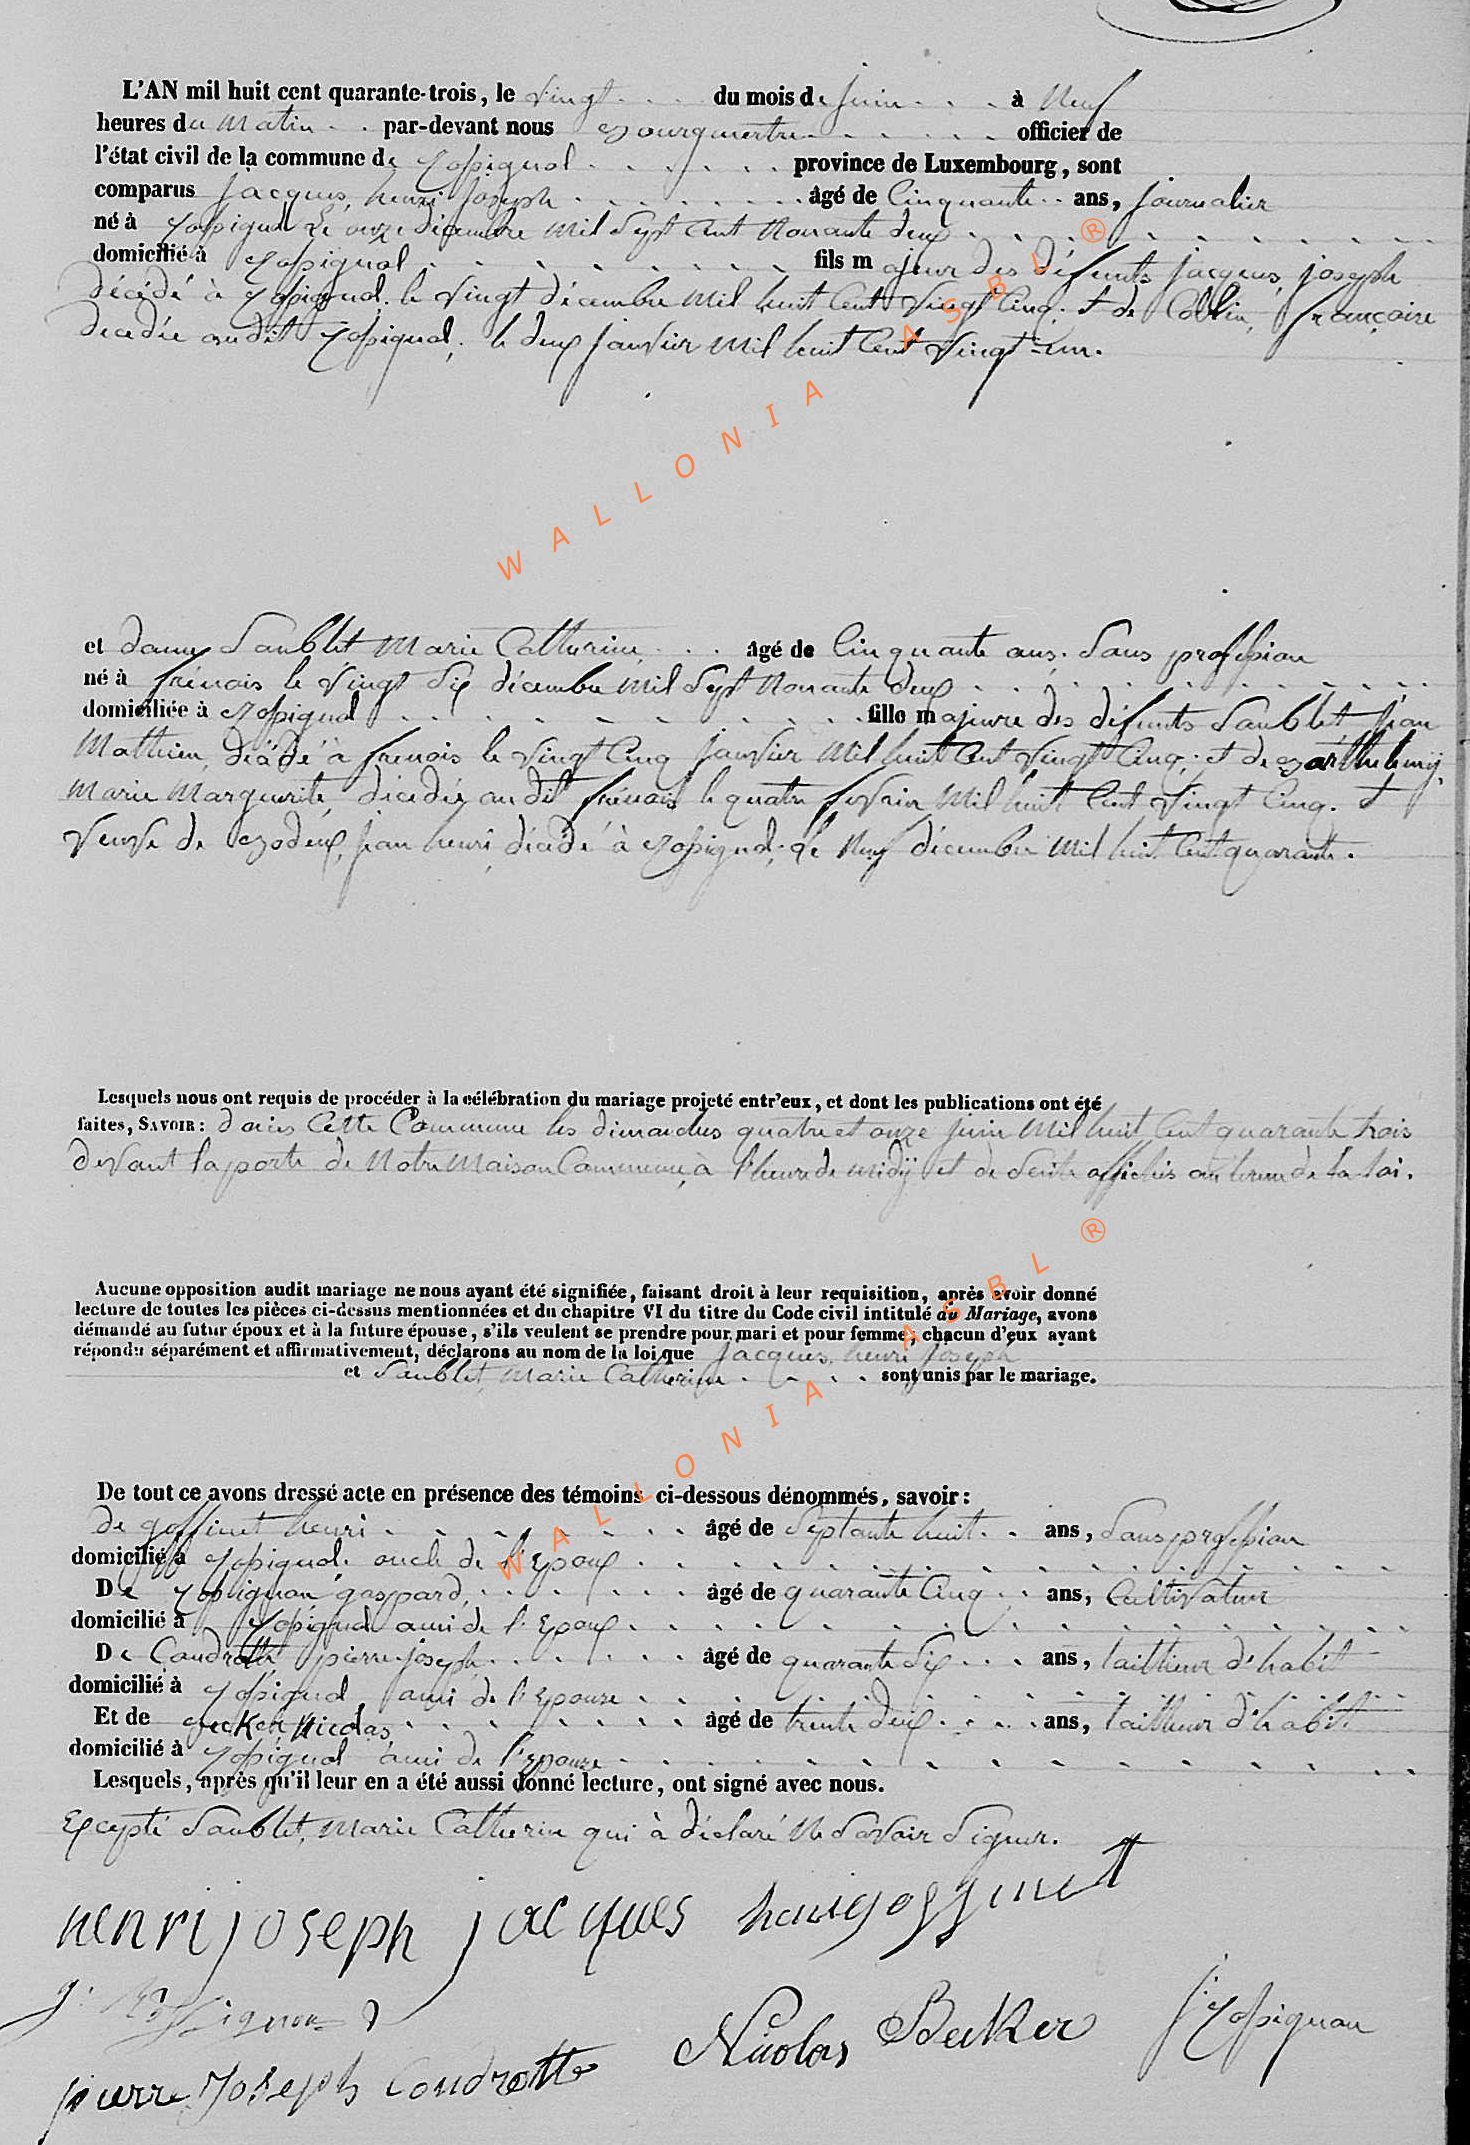 L'AN mil huit cent quarante-trois, le vingt du mois de juin à neuf
heures du matin par-devant nous Bourgmestre officier de
l'état civil de la commune de Rossignol province de Luxembourg, sont
comparus Jacques, henri Joseph âgé de Cinquante ans, journalier
né à Rossignol Le onze décembre mil Sept Cent Nonante deux
domicilié à Rossignol fils majeur des défunts Jacques, joseph
décédé à Rossignol, le vingt décembre mil huit Cent vingt Cinq; et de Collin, françoise
decedée audit Rossignol, le deux janvier mil huit Cent vingt-un.
et dame Saublet Marie Catherine âgé de Cinquante ans. Sans profession
né à frénois le vingt Six décembre mil Sept Nonante deux
domiciliée à Rossignol fille majeure des défunts Saublet, jean
Mathieu, décédé à frenois le vingt Cinq janvier mil huit Cent vingt Cinq; et de Barthelemÿ,
Marie Marguerite, décedée audit frénois le quatre fevrier mil huit Cent vingt Cinq. et
veuve de Bodeux, jean henri, décédé à Rossignol; Le Neuf décembre mil huit Cent quarante.
Lesquels nous ont requis de procéder à la célébration du mariage projeté entr'eux, et dont les publications ont été
faites, SAVOIR: dans Cette Commune les dimanches quatre et onze juin mil huit Cent quarante trois
devant la porte de Notre Maison Commune, à l'heure de midÿ et de Suite affichés au terme de la loi.
Aucune opposition audit mariage ne nous ayant été signifiée, faisant droit à leur requisition, après avoir donné
lecture de toutes les pièces ci-dessus mentionnées et du chapitre VI du titre du Code civil intitulé du Mariage, avons
démandé au futur époux et à la future épouse, s'ils veulent se prendre pour mari et pour femme, chacun d'eux ayant
répondu séparément et affirmativement, déclarons au nom de la loi que Jacques, henri Joseph
et Saublet, Marie Catherine sont unis par le mariage.
De tout ce avons dressé acte en présence des témoins ci-dessous dénommés, savoir:
de goffinet henri âgé de Septante huit ans, Sans profession
domicilié à Rossignol. oncle de l'Epoux
De Rossignon gaspard, âgé de quarante Cinq ans, Cultivateur
domicilié à Rossignol ami de l'Epoux
De Condrotte pierre joseph âgé de quarante Six ans, tailleur d'habit
domicilié à Rossignol, ami de l'Epouse
Et de Becker, Nicolas, âgé de trente deux ans, tailleur d'habit.
domicilié à Rossignol ami de l'Epouse
Lesquels, après qu'il leur en a été aussi donné lecture, ont signé avec nous.
Excepté Saublet, Marie Catherine qui à déclaré Ne Savoir Signer.
henri joseph jacques henri goffinet
g. Rossignon
Nicolas Becker J. Rossignon
pierre Joseph Condrotte
WALLONIA ASBL ®
WALLONIA ASBL ®